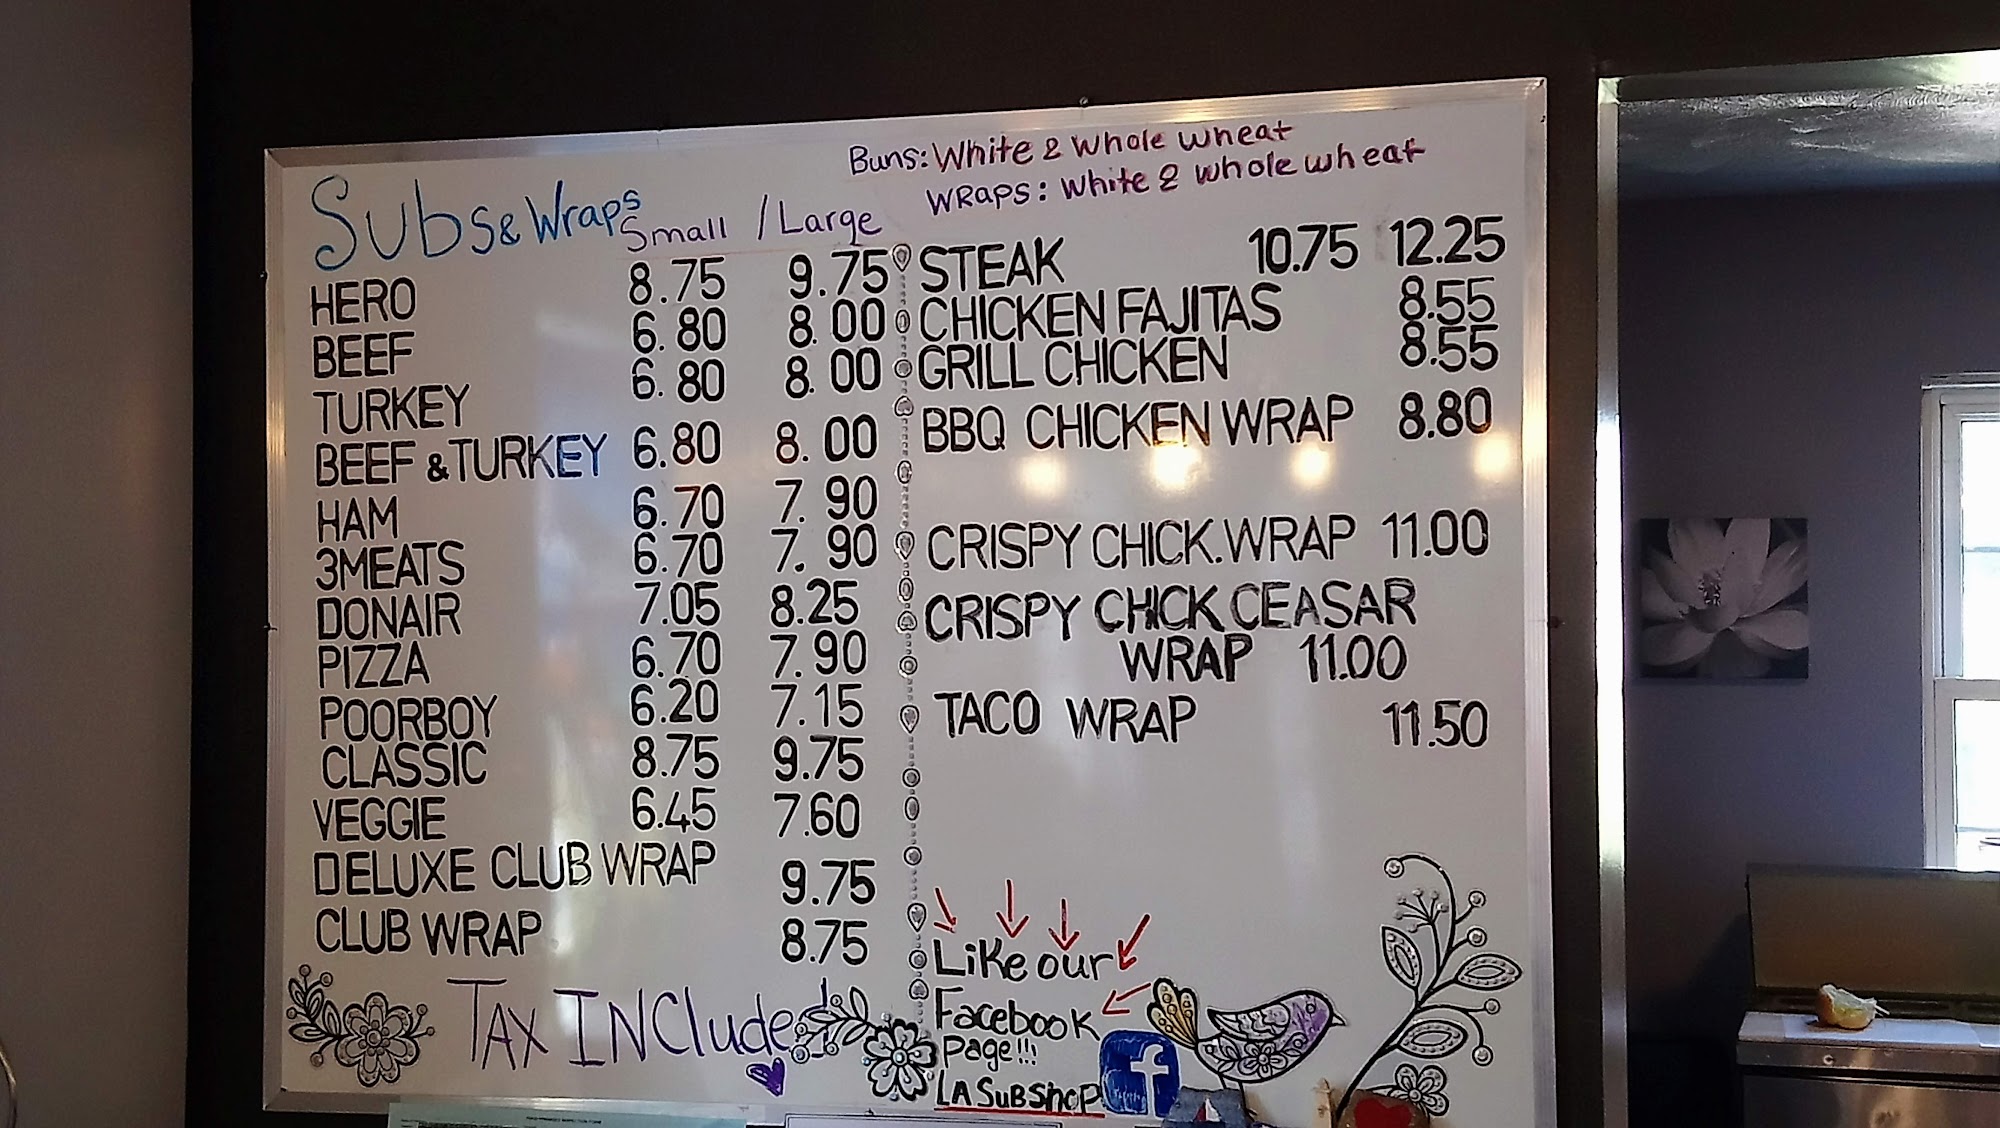 Subs & Wraps Small / Large
HERO 8.75 9.75
BEEF 6.80 8.00
TURKEY 6.80 8.00
BEEF & TURKEY 6.80 8.00
HAM 6.70 7.90
3MEATS 6.70 7.90
DONAIR 7.05 8.25
PIZZA 6.70 7.90
POORBOY 6.20 7.15
CLASSIC 8.75 9.75
VEGGIE 6.45 7.60
DELUXE CLUB WRAP 9.75
CLUB WRAP 8.75
TAX INCluded
Buns: White & whole wheat
WRaps: white & whole wheat
STEAK 10.75 12.25
CHICKEN FAJITAS 8.55
GRILL CHICKEN 8.55
BBQ CHICKEN WRAP 8.80
CRISPY CHICK.WRAP 11.00
CRISPY CHICK CEASAR
WRAP 11.00
TACO WRAP 11.50
Like our
Facebook
Page!!!
LA SuB Shop
f